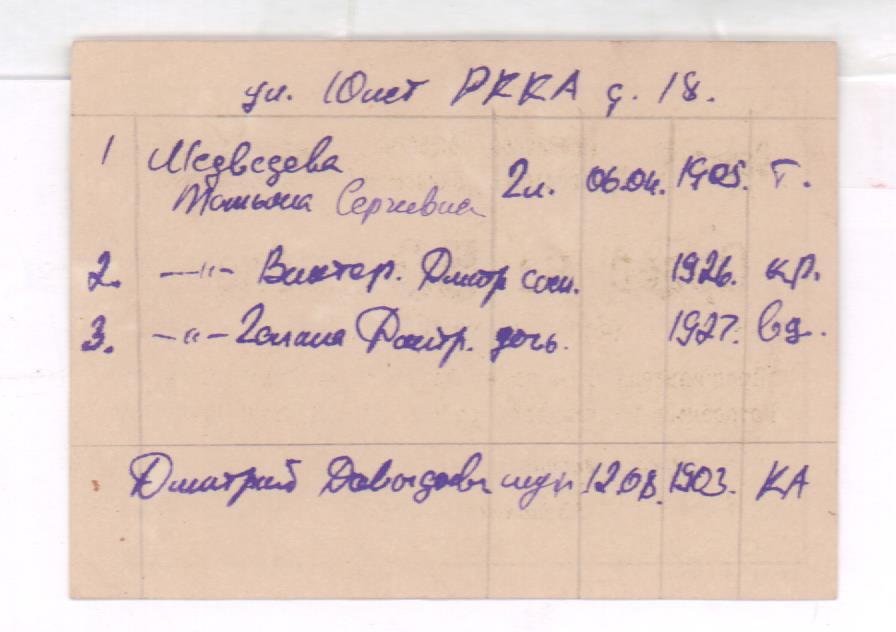 ул. 10 лет РККА д. 18.
1 Медведева
Татьяна Сергиевна 2л. 06.04. 1905. Т.
2. —"— Виктор. Дмитр сын. 1926. кр.
3. —"— Галина Дмитр. дочь. 1927. вд.
Дмитрий Давыдович муж 12.08. 1903. КА